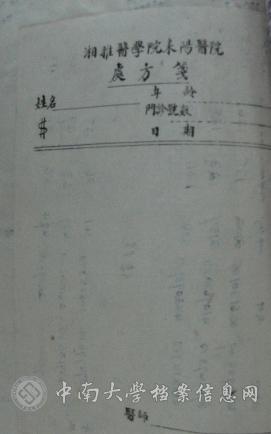 湘雅醫學院耒陽醫院
處方箋
年齡
姓名
門診號數
日期
醫師
中南大学档案信息网